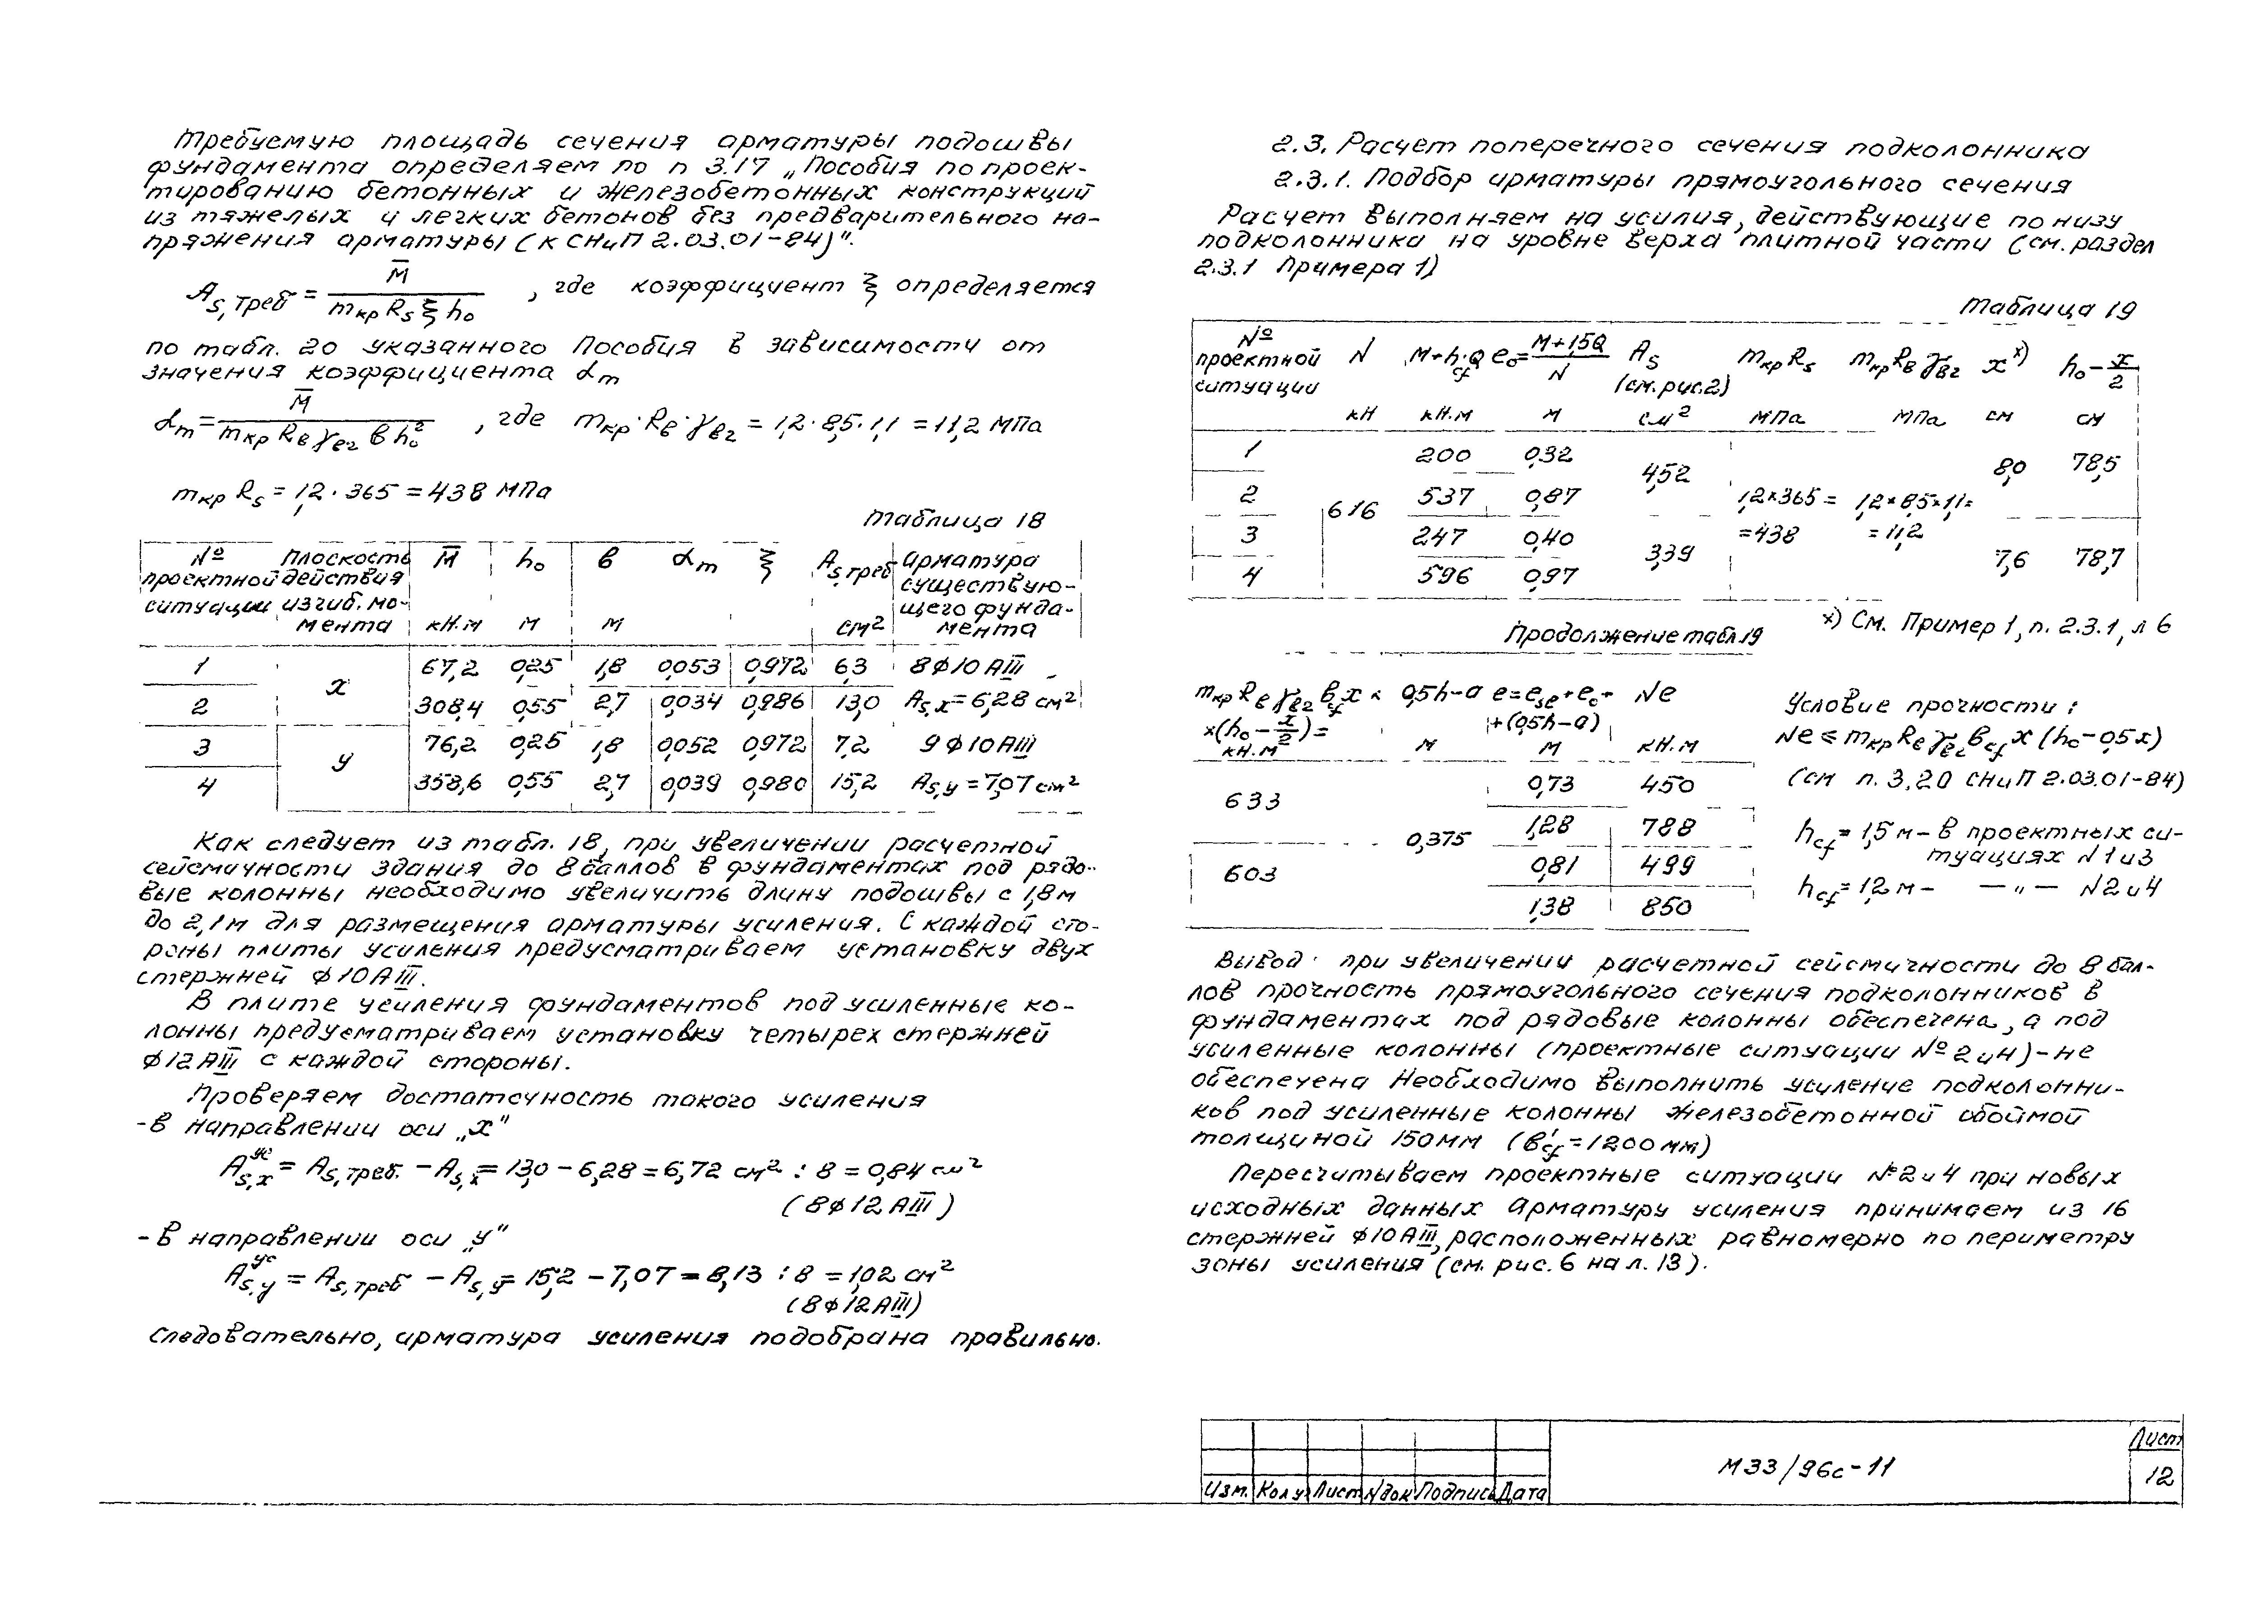 Требуемую площадь сечения арматуры подошвы
фундамента определяем по п 3.17 „Пособия по проек-
тированию бетонных и железобетонных конструкций
из тяжелых и легких бетонов без предварительного на-
пряжения арматуры (к СНиП 2.03.01-84)".
As,треб = M̄ / (mкр Rs ξ h₀) , где коэффициент ξ определяется
по табл. 20 указанного Пособия в зависимости от
значения коэффициента αm
αm = M̄ / (mкр Rв γв2 в h₀²) , где mкр·Rв·γв2 = 1,2·8,5·1,1 = 11,2 МПа
mкр Rs = 1,2·365 = 438 МПа
Таблица 18
№ проектной ситуации | Плоскость действия изгиб. мо-мента | M̄ кН.м | h₀ м | в м | αm | ξ | As,треб см² | Арматура существую-щего фунда-мента
1 | x | 67,2 | 0,25 | 1,8 | 0,053 | 0,972 | 6,3 | 8ф10АIII
2 | 308,4 | 0,55 | 2,7 | 0,034 | 0,986 | 13,0 | As,x = 6,28 см²
3 | y | 76,2 | 0,25 | 1,8 | 0,052 | 0,972 | 7,2 | 9ф10АIII
4 | 358,6 | 0,55 | 2,7 | 0,039 | 0,980 | 15,2 | As,y = 7,07 см²
Как следует из табл. 18, при увеличении расчетной
сейсмичности здания до 8 баллов в фундаментах под рядо-
вые колонны необходимо увеличить длину подошвы с 1,8м
до 2,1м для размещения арматуры усиления. С каждой сто-
роны плиты усиления предусматриваем установку двух
стержней ф10АIII.
В плите усиления фундаментов под усиленные ко-
лонны предусматриваем установку четырех стержней
ф12АIII с каждой стороны.
Проверяем достаточность такого усиления
-в направлении оси „x"
Aус s,x = As,треб. - As,x = 13,0 - 6,28 = 6,72 см² : 8 = 0,84 см²
(8ф12АIII)
-в направлении оси „y"
Aус s,y = As,треб - As,y = 15,2 - 7,07 = 8,13 : 8 = 1,02 см²
(8ф12АIII)
Следовательно, арматура усиления подобрана правильно.
2.3. Расчет поперечного сечения подколонника
2.3.1. Подбор арматуры прямоугольного сечения
Расчет выполняем на усилия, действующие по низу
подколонника на уровне верха плитной части (см. раздел
2.3.1 Примера 1)
Таблица 19
№ проектной ситуации | N кН | M+hcf·Q кН.м | e₀= (M+1,5Q)/N м | As (см.рис.2) см² | mкр Rs МПа | mкр Rв γв2 МПа | x ˣ⁾ см | h₀ - x/2 см
1 | 616 | 200 | 0,32 | 4,52 | 1,2×365= =438 | 1,2×8,5×1,1= =11,2 | 8,0 | 78,5
2 | 537 | 0,87
3 | 247 | 0,40 | 3,39 | 7,6 | 78,7
4 | 596 | 0,97
x) См. Пример 1, п. 2.3.1, л 6
Продолжение табл 19
mкр Rв γв2 вcf x × ×(h₀ - x/2)= кН.м | 0,5h-a м | e=ese+e₀+ +(0,5h-a) м | Ne кН.м
633 | 0,375 | 0,73 | 450
1,28 | 788
603 | 0,81 | 499
1,38 | 850
Условие прочности :
Ne ≤ mкр Rв γв2 вcf x (h₀-0,5x)
(см п. 3.20 СНиП 2.03.01-84)
hcf = 1,5 м - в проектных си-
туациях N 1 и 3
hcf = 1,2 м - — „ — N 2 и 4
Вывод при увеличении расчетной сейсмичности до 8 бал-
лов прочность прямоугольного сечения подколонников в
фундаментах под рядовые колонны обеспечена, а под
усиленные колонны (проектные ситуации № 2 и 4) - не
обеспечена Необходимо выполнить усиление подколонни-
ков под усиленные колонны железобетонной обоймой
толщиной 150мм (в'cf = 1200 мм)
Пересчитываем проектные ситуации № 2 и 4 при новых
исходных данных Арматуру усиления принимаем из 16
стержней ф10АIII, расположенных равномерно по периметру
зоны усиления (см. рис. 6 на л. 13).
Изм. Кол.у Лист Nдок Подпись Дата
М33/96с-11
Лист
12